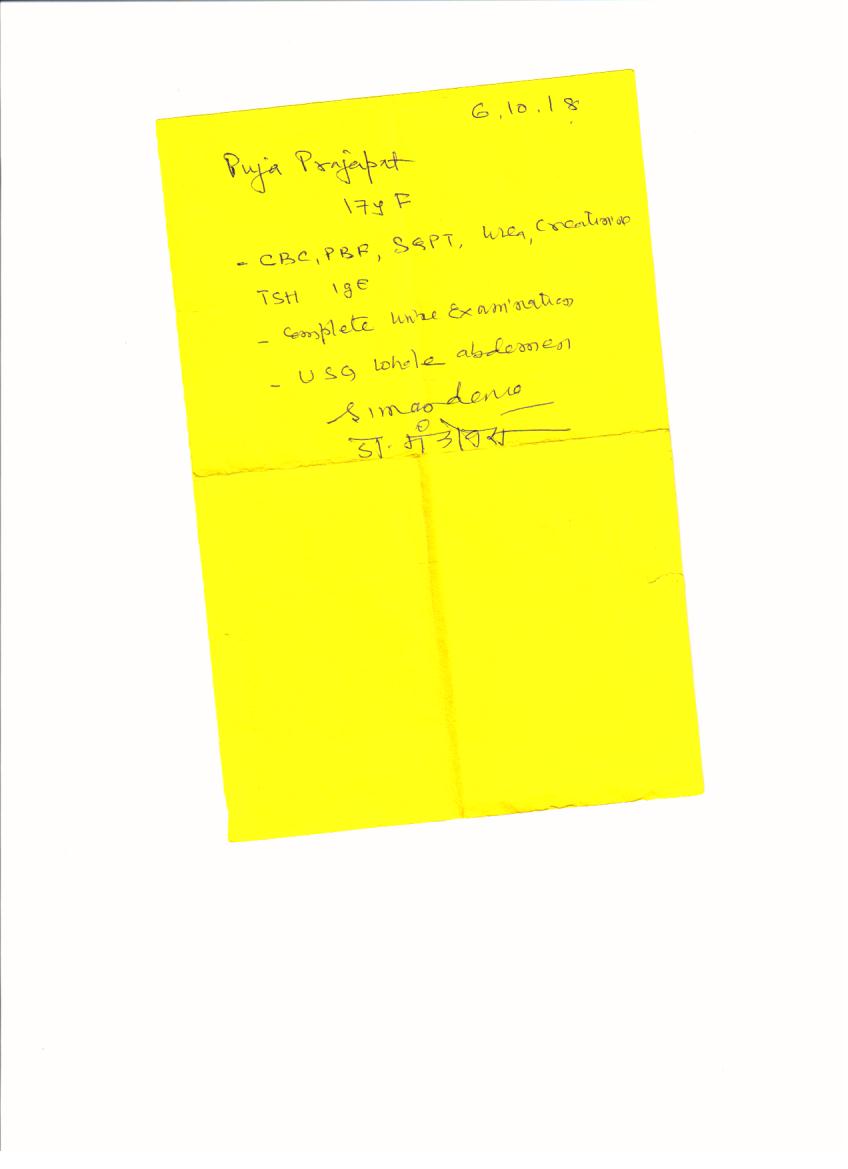 6.10.18
Puja Prajapat
17y F
- CBC, PBF, SGPT, Urea, Creatinine
TSH IgE
- Complete Urine Examination
- USG Whole abdomen
डा.